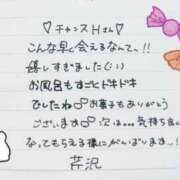 ♡チャンスHさん♡
こんな早く会えるなんて、、!!
嬉しすぎました(;;)
お風呂もすごくドキドキ
でしたね∞お菓子もありがとう
ございます∞次は…気持ちよく
なってもらえる様にがんばります…!!
芹沢